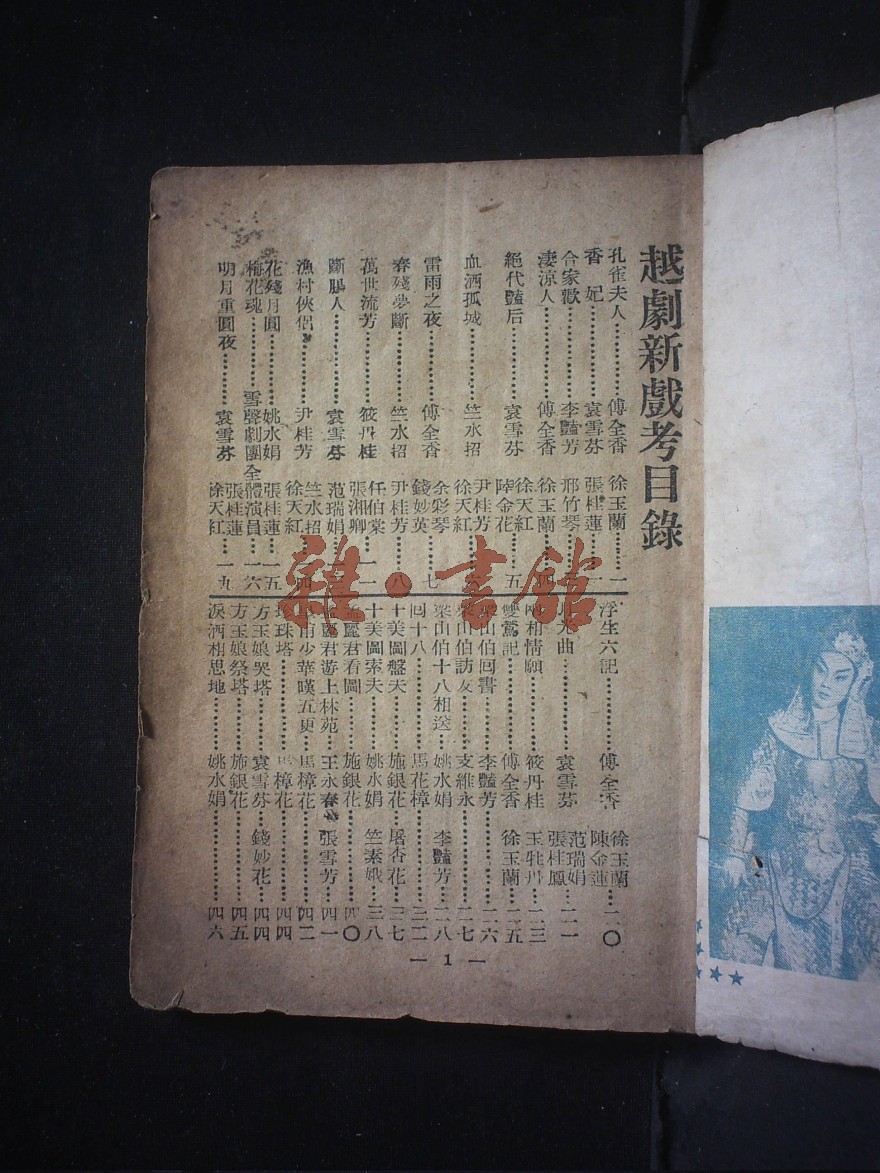 越劇新戲考目錄
孔雀夫人…………傅全香 徐玉蘭…一
香妃…………袁雪芬 張桂蓮
合家歡…………李豔芳 邢竹琴
淒涼人…………傅全香 徐玉蘭
絕代豔后…………袁雪芬 陸金花 徐天紅…五
血洒孤城…………竺水招 徐天紅 尹桂芳
雷雨之夜…………傅全香 錢妙英 余彩琴…七
春殘夢斷…………竺水招 尹桂芳…八
萬世流芳…………筱丹桂 張湘卿 任伯棠…一一
斷腸人…………袁雪芬 范瑞娟
漁村俠侶…………尹桂芳 徐天紅 竺水招…四
花殘月圓…………姚水娟 張桂蓮…一五
梅花魂…………雪聲劇團全體演員…一六
明月重圓夜…………袁雪芬 徐天紅 張桂蓮…一九
浮生六記…………傅全香 陳金蓮 徐玉蘭…二〇
光曲…………袁雪芬 張桂鳳 范瑞娟…二一
兩相情願…………筱丹桂 玉牡丹…二三
雙鴛記…………傅全香 徐玉蘭…二五
梁山伯回書…………李豔芳…二六
梁山伯訪友…………支維永…二七
梁山伯十八相送…………姚水娟 李豔芳…二八
回十八…………馬花樟…三二
十美圖盤夫…………施銀花 屠杏花…三七
十美圖索夫…………姚水娟 竺素娥…三八
麗君看圖…………施銀花…四〇
麗君遊上林苑…………王永春 張雪芳…四一
甫少華嘆五更…………馬樟花…四二
珍珠塔…………馬樟花…四四
方玉娘哭塔…………袁雪芬 錢妙花…四四
方玉娘祭塔…………施銀花…四五
淚洒相思地…………姚水娟…四六
— 1 —
雜·書館